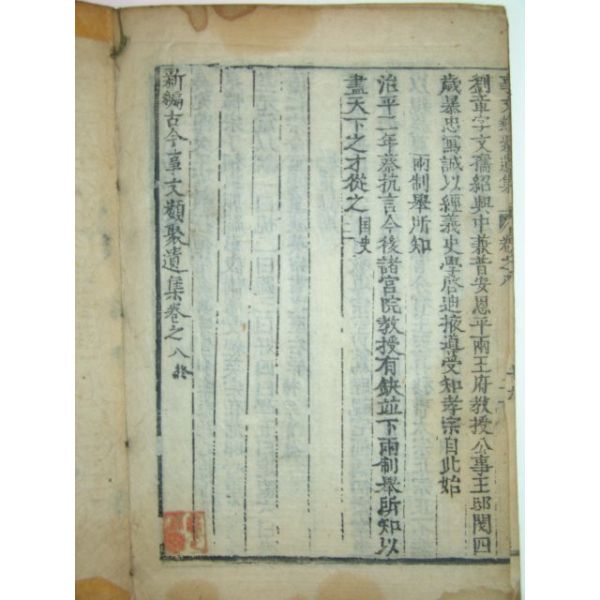 事文類聚遺集 卷之八
劉章字文孺紹興中義普安恩平兩王府教授公事王邸閱四
歲暴忠寫誠以經義史學啓迪掖導受知孝宗自此始
兩制舉所知
治平二年蔡抗言今後諸宮院教授有缺並下兩制舉所知以
盡天下之才從之 国史
新編古今事文類聚遺集卷之八 終